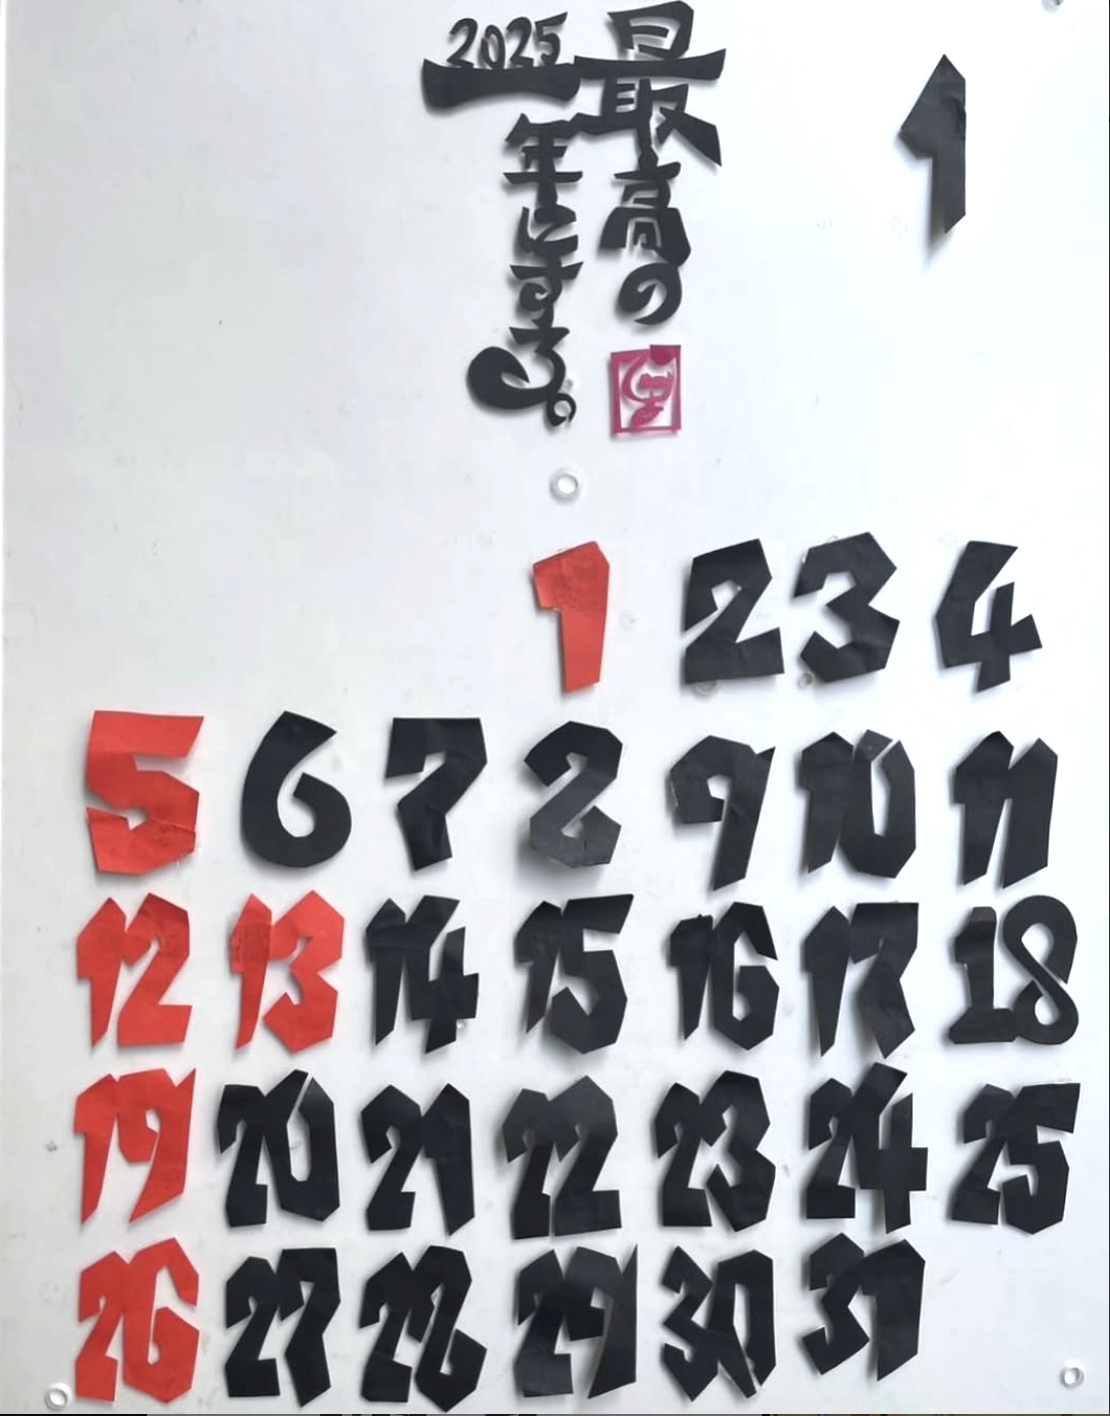 1
最高の
2025
一年にする。
1 2 3 4
5 6 7 8 9 10 11
12 13 14 15 16 17 18
19 20 21 22 23 24 25
26 27 28 29 30 31